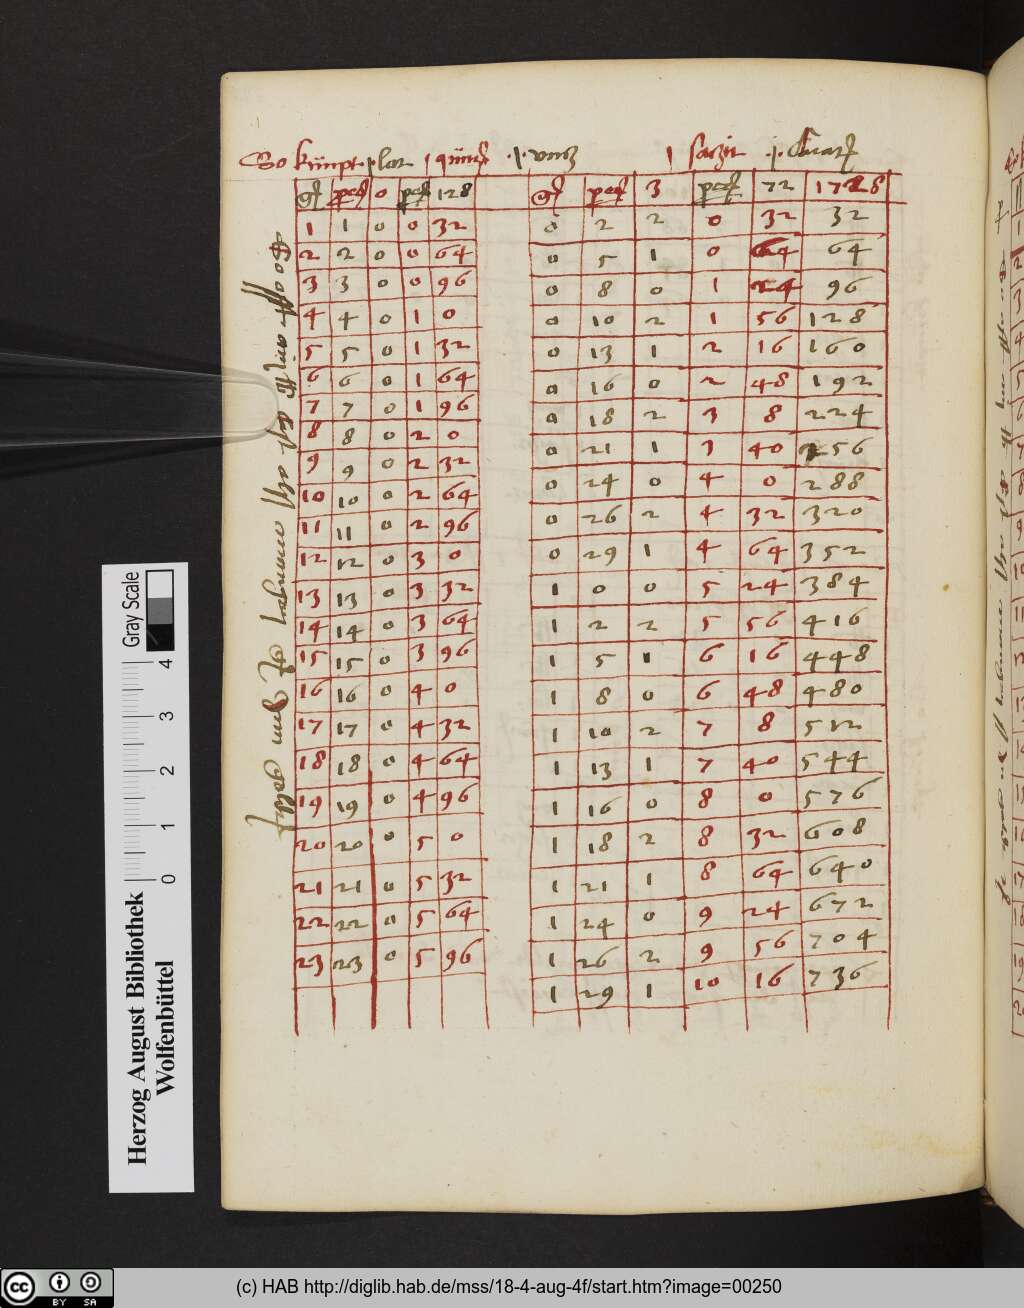 So kumpt 1 lot 1 quint .1. unz 1 sazit .1. Quart
gl pcf 0 pcf 128
1 1 0 0 32
2 2 0 0 64
3 3 0 0 96
4 4 0 1 0
5 5 0 1 32
6 6 0 1 64
7 7 0 1 96
8 8 0 2 0
9 9 0 2 32
10 10 0 2 64
11 11 0 2 96
12 12 0 3 0
13 13 0 3 32
14 14 0 3 64
15 15 0 3 96
16 16 0 4 0
17 17 0 4 32
18 18 0 4 64
19 19 0 4 96
20 20 0 5 0
21 21 0 5 32
22 22 0 5 64
23 23 0 5 96
gl pcf 3 pcf 72 1728
0 2 2 0 32 32
0 5 1 0 64 64
0 8 0 1 24 96
0 10 2 1 56 128
0 13 1 2 16 160
0 16 0 2 48 192
0 18 2 3 8 224
0 21 1 3 40 256
0 24 0 4 0 288
0 26 2 4 32 320
0 29 1 4 64 352
1 0 0 5 24 384
1 2 2 5 56 416
1 5 1 6 16 448
1 8 0 6 48 480
1 10 2 7 8 512
1 13 1 7 40 544
1 16 0 8 0 576
1 18 2 8 32 608
1 21 1 8 64 640
1 24 0 9 24 672
1 26 2 9 56 704
1 29 1 10 16 736
Gray Scale
0 1 2 3 4
Herzog August Bibliothek
Wolfenbüttel
cc BY SA
(c) HAB http://diglib.hab.de/mss/18-4-aug-4f/start.htm?image=00250